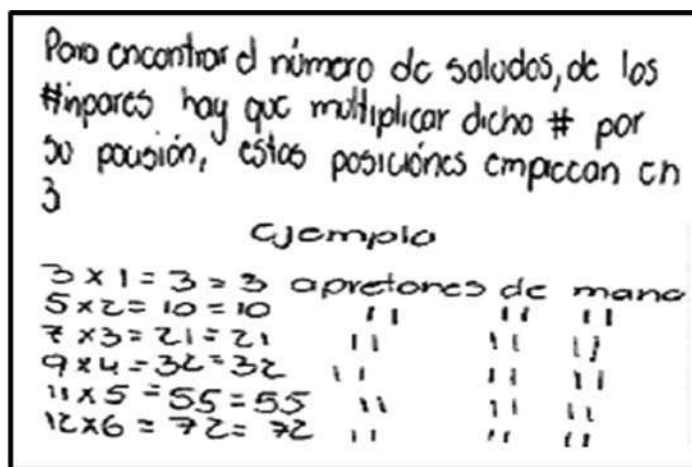 Para encontrar el número de saludos, de los
#inpares hay que multiplicar dicho # por
su pocision, estas posiciónes empiezan en
3
Ejemplo
3 x 1 = 3 = 3 apretones de mano
5 x 2 = 10 = 10 " " "
7 x 3 = 21 = 21 " " "
9 x 4 = 32 = 32 " " "
11 x 5 = 55 = 55 " " "
12 x 6 = 72 = 72 " " "